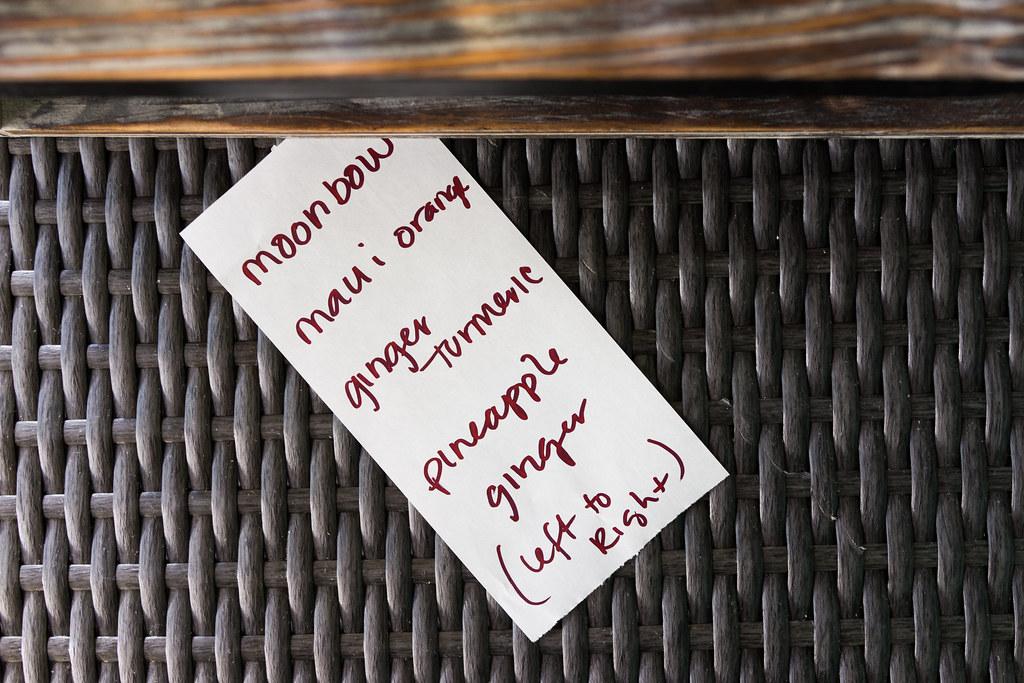 moonbow
maui orange
ginger
turmeric
pineapple
ginger
(left to
Right)